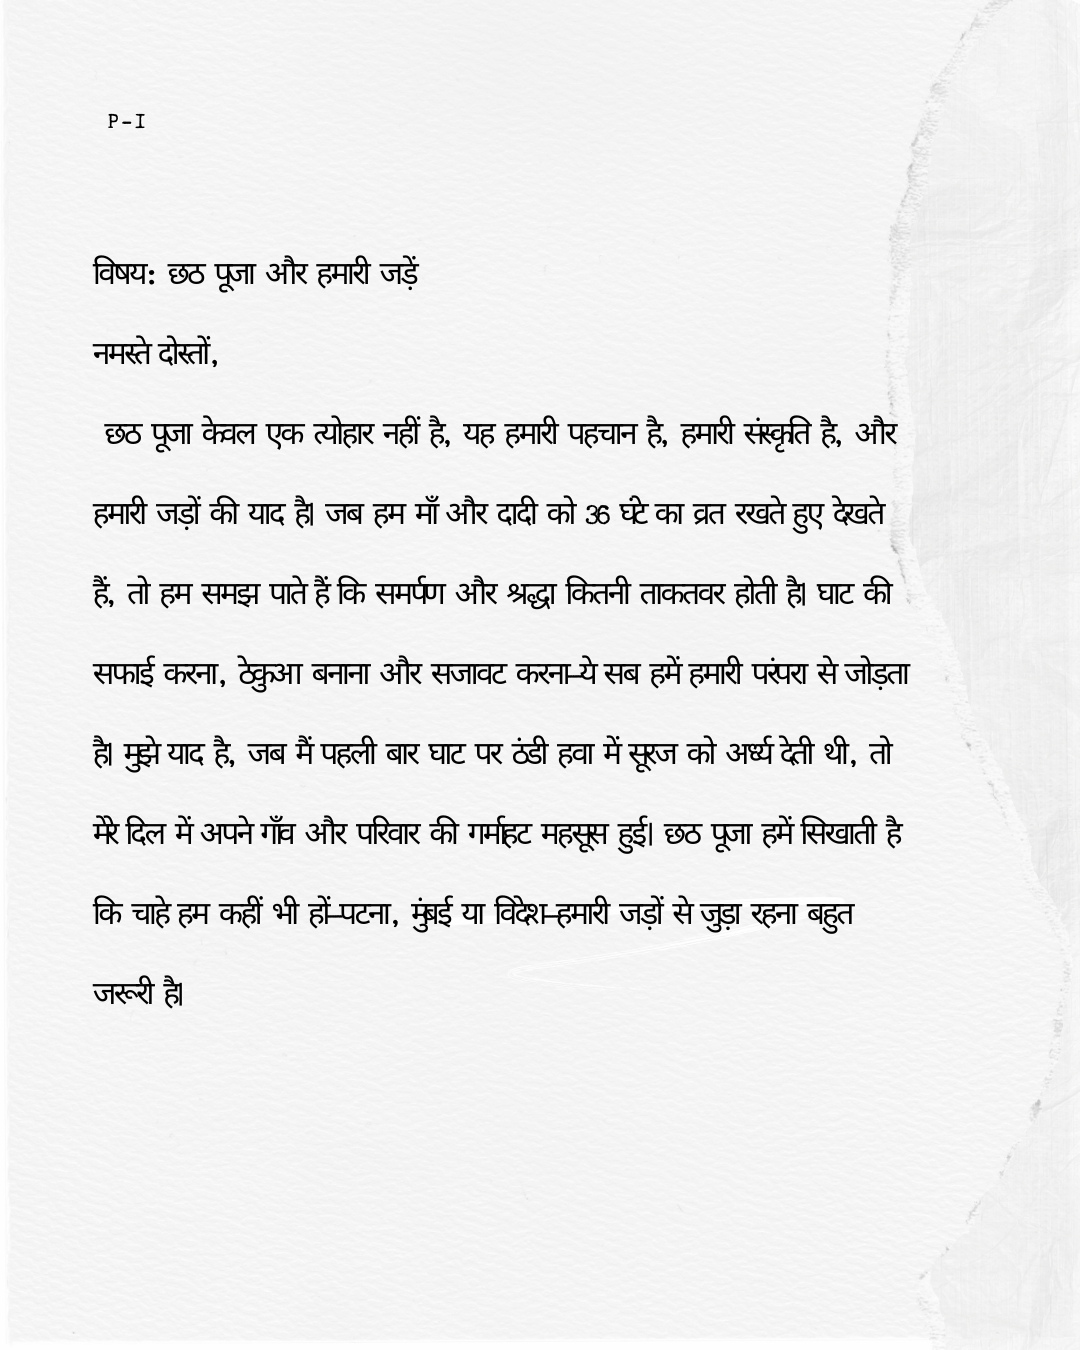 P-I
विषय: छठ पूजा और हमारी जड़ें
नमस्ते दोस्तों,
छठ पूजा केवल एक त्योहार नहीं है, यह हमारी पहचान है, हमारी संस्कृति है, और
हमारी जड़ों की याद है। जब हम माँ और दादी को 36 घंटे का व्रत रखते हुए देखते
हैं, तो हम समझ पाते हैं कि समर्पण और श्रद्धा कितनी ताकतवर होती है। घाट की
सफाई करना, ठेकुआ बनाना और सजावट करना–ये सब हमें हमारी परंपरा से जोड़ता
है। मुझे याद है, जब मैं पहली बार घाट पर ठंडी हवा में सूरज को अर्ध्य देती थी, तो
मेरे दिल में अपने गाँव और परिवार की गर्माहट महसूस हुई। छठ पूजा हमें सिखाती है
कि चाहे हम कहीं भी हों–पटना, मुंबई या विदेश–हमारी जड़ों से जुड़ा रहना बहुत
जरूरी है।